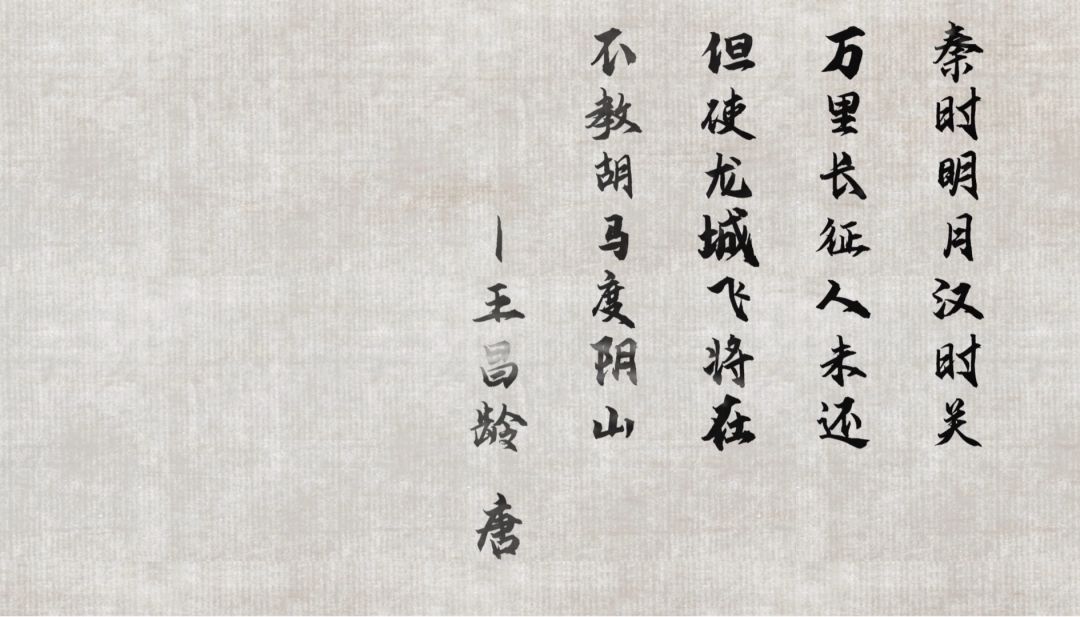 秦时明月汉时关
万里长征人未还
但使龙城飞将在
不教胡马度阴山
—王昌龄 唐